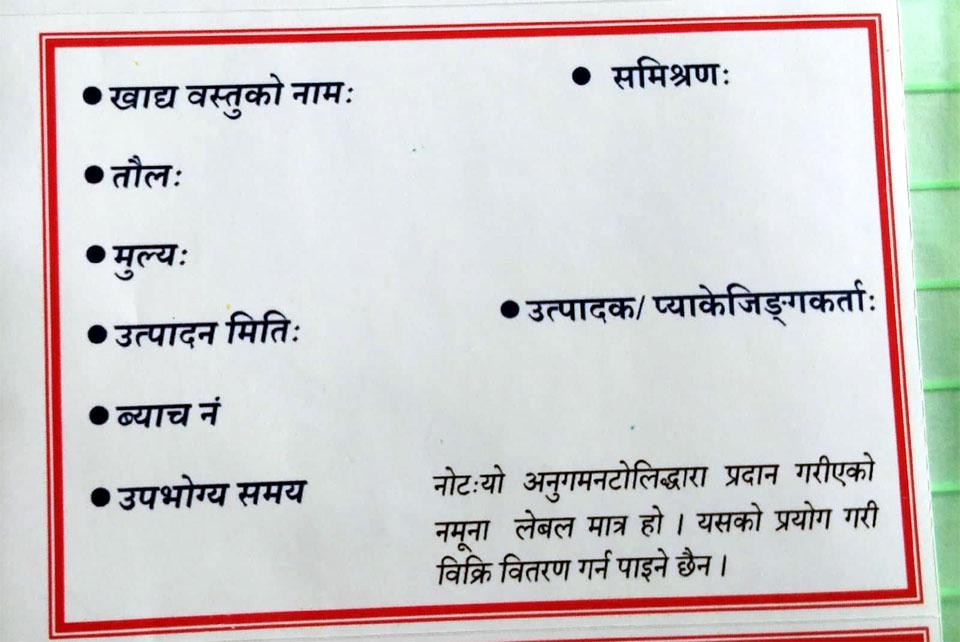 ● खाद्य वस्तुको नामः
● तौलः
● मुल्यः
● उत्पादन मितिः
● ब्याच नं
● उपभोग्य समय
● समिश्रणः
● उत्पादक/ प्याकेजिङ्गकर्ताः
नोटःयो अनुगमनटोलिद्धारा प्रदान गरीएको
नमूना लेबल मात्र हो । यसको प्रयोग गरी
विक्रि वितरण गर्न पाइने छैन ।